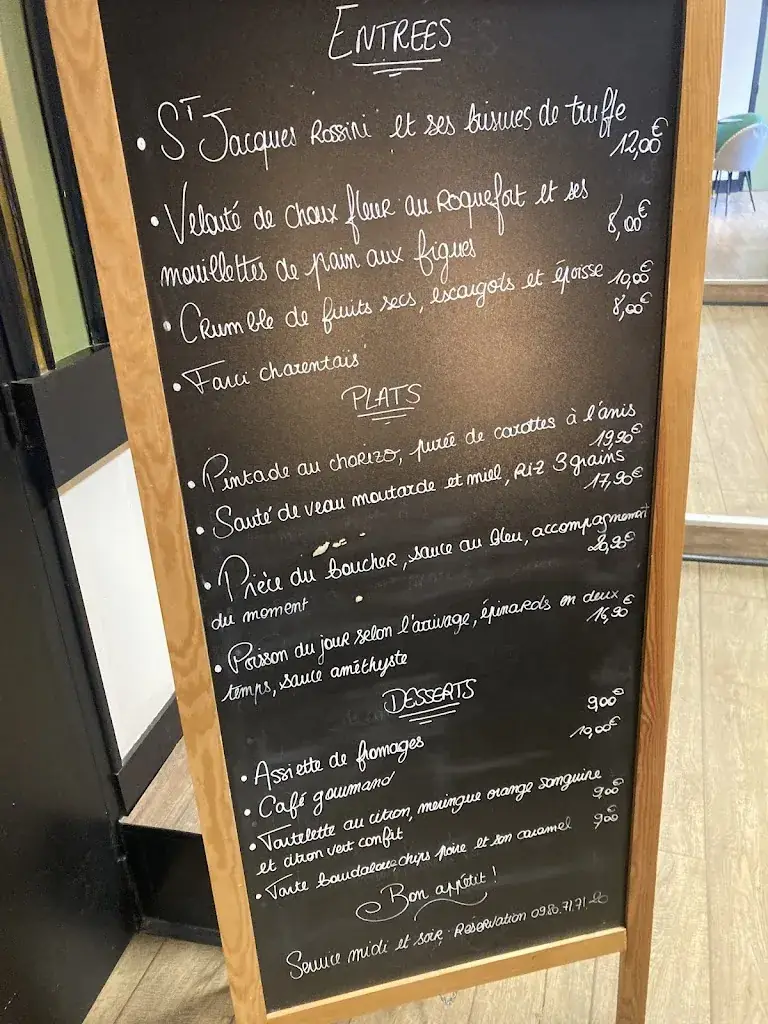 ENTREES
• ST Jacques Rossini et ses brisures de truffe
12,00€
• Velouté de choux fleur au Roquefort et ses
8,00€
mouillettes de pain aux figues
• Crumble de fruits secs, escargots et époisse 10,00€
8,00€
• Farci charentais
PLATS
• Pintade au chorizo, purée de carottes à l'anis
19,90€
• Sauté de veau moutarde et miel, Riz 3 grains
17,90€
• Pièce du boucher, sauce au bleu, accompagnement
20,90€
du moment
• Poisson du jour selon l'arrivage, épinards en deux
16,90€
temps, sauce améthyste
DESSERTS
9,00€
• Assiette de fromages
10,00€
• Café gourmand
• Tartelette au citron, meringue orange sanguine
9,00€
et citron vert confit
• Tarte bourdaloue, chips poire et son caramel
9,00€
Bon appétit !
Service midi et soir. Réservation 09.80.71.71.20